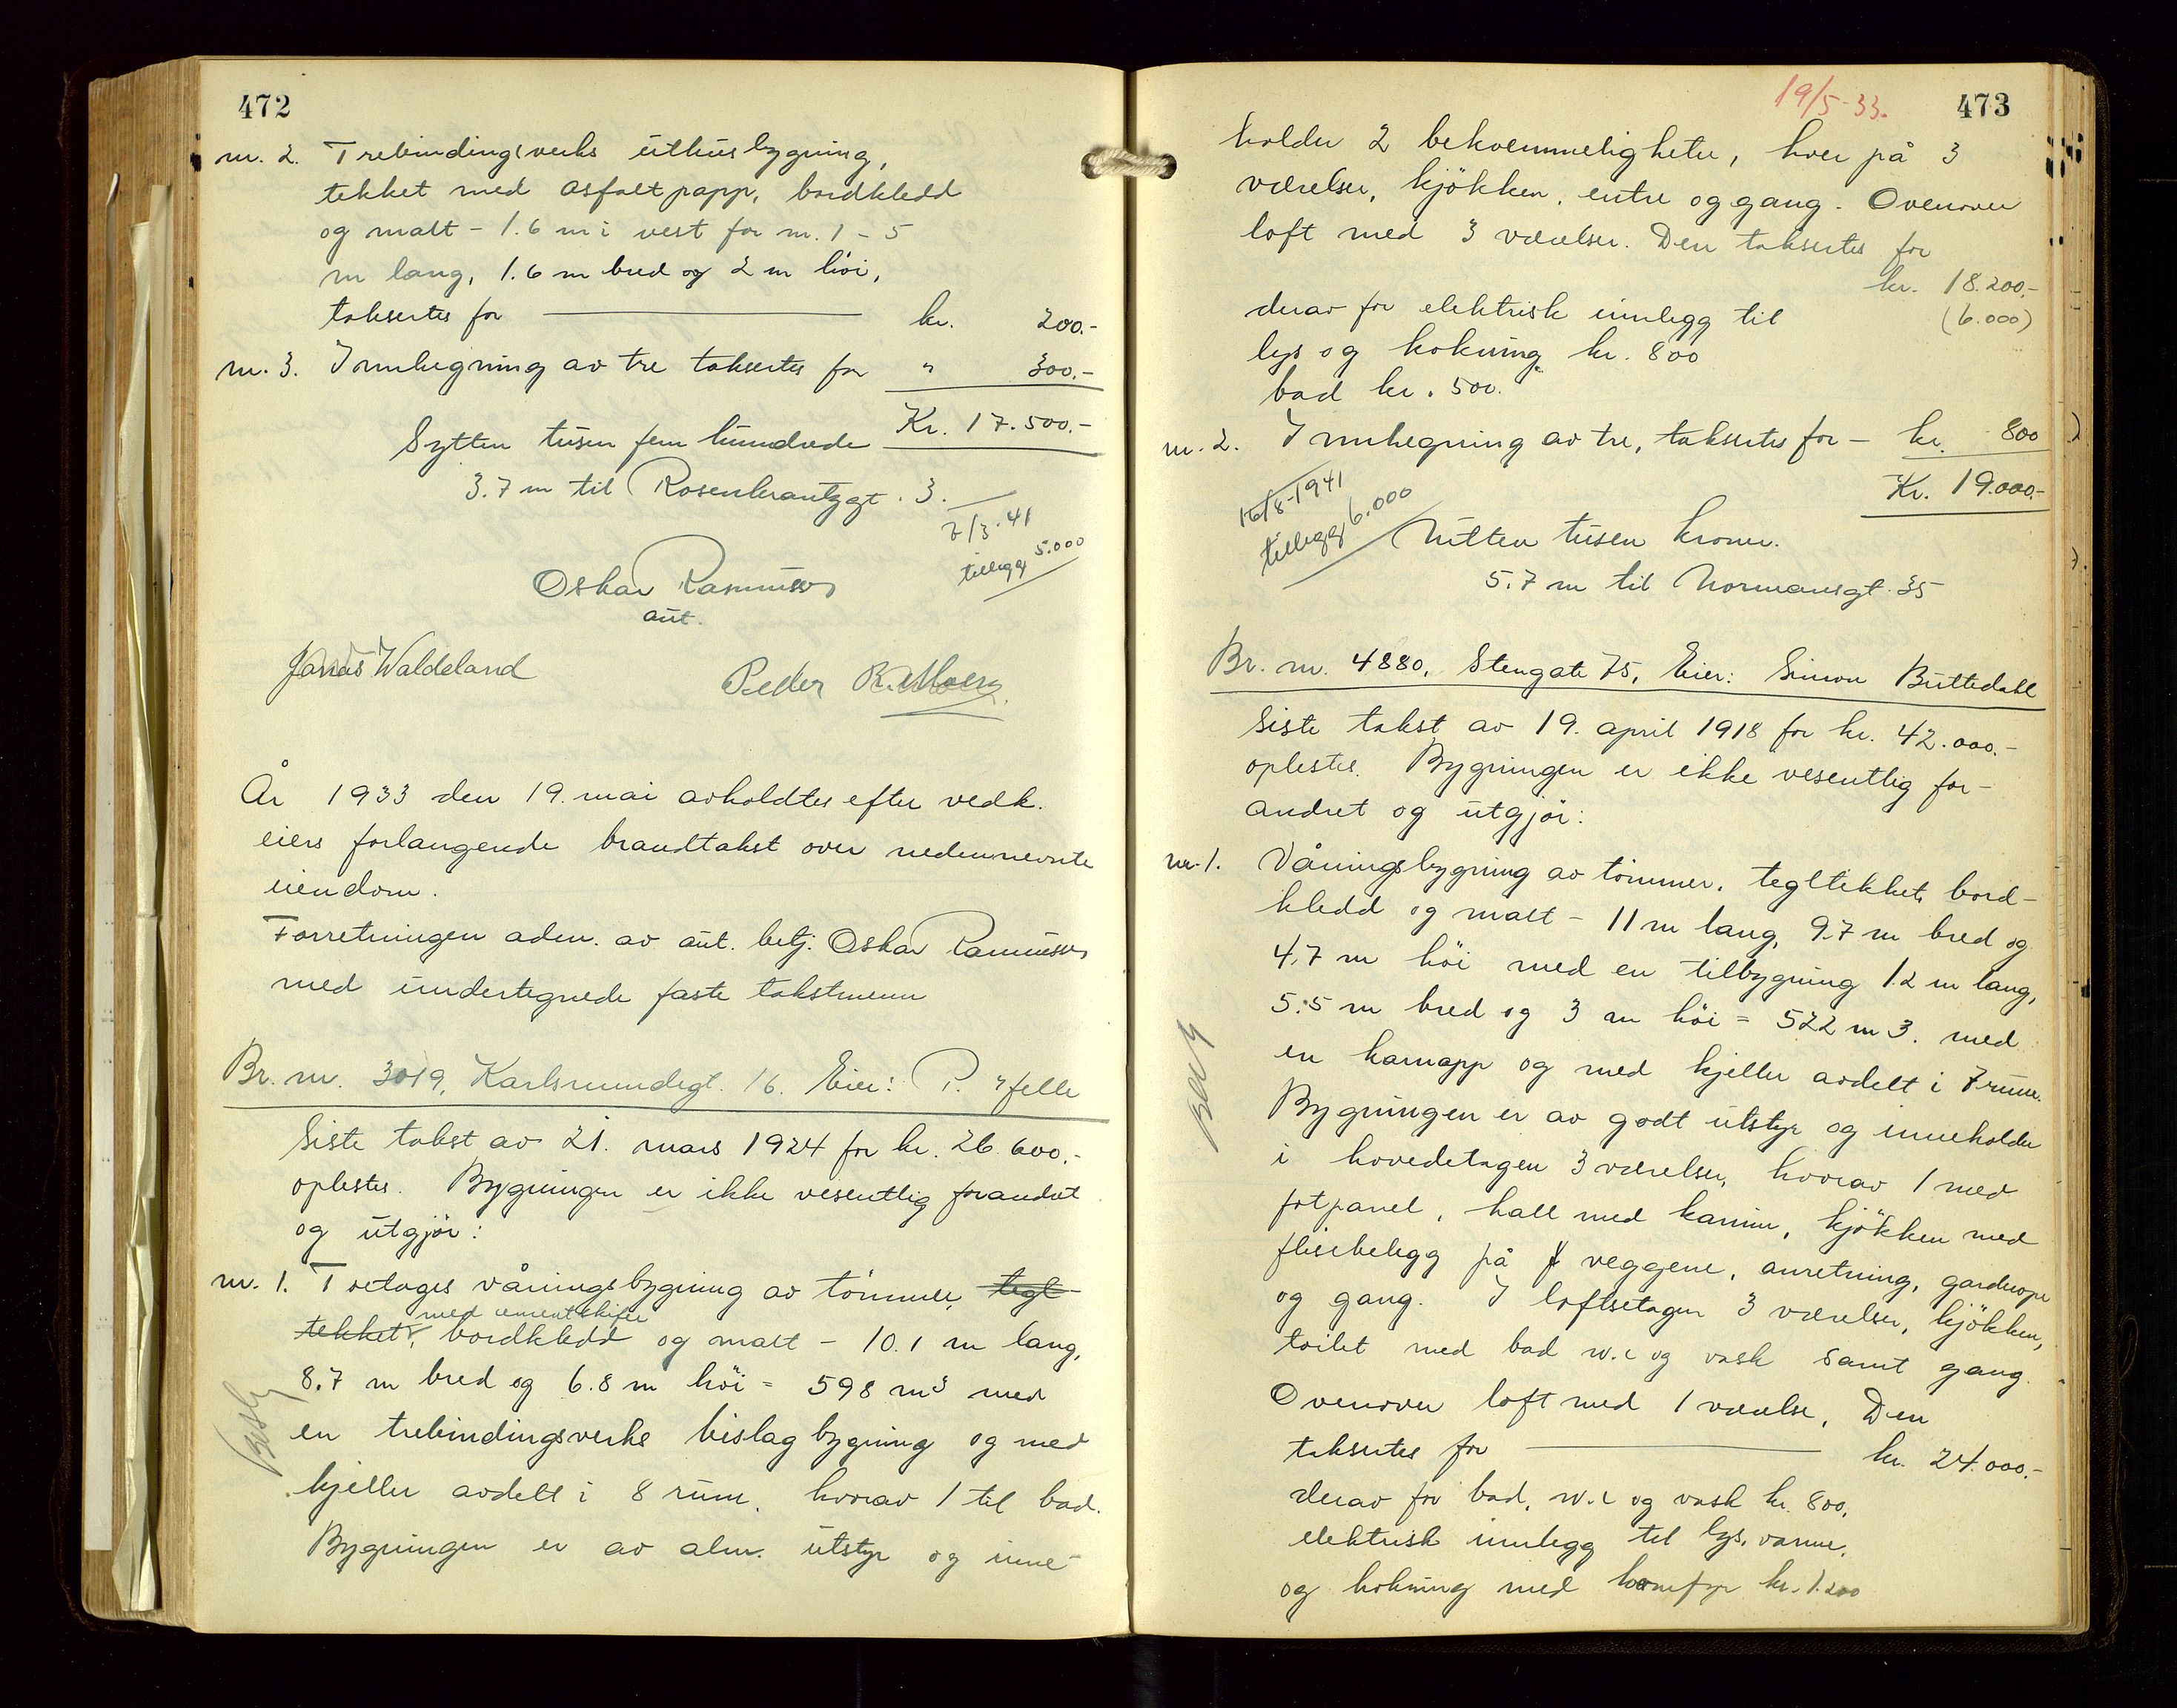 472
nr. 2. Trebindingsverks uthusbygning,
tekket med asfaltpapp, bordkledd
og malt - 1.6 m i vest for nr. 1 - 5
m lang, 1.6 m bred og 2 m höi,
taksertes for kr. 200.-
nr. 3. Innhegning av tre taksertes for " 300.-
Kr. 17.500.-
Sytten tusen fem hundrede
3.7 m til Rosenkrantzgt. 3.
7/3-41
tillegg 5.000
Oskar Rasmussen
aut.
Jonas Waldeland
Peder
År 1933 den 19. mai avholdtes efter vedk.
eiers forlangende brandtakst over nedennevnte
eiendom.
Forretningen adm. av aut. betj. Oskar Rasmussen
med undertegnede faste takstmenn
Br. nr. 3019, Karlsmindegt. 16. Eier: P.
Siste takst av 21. mars 1924 for kr. 26.600.-
oplestes. Bygningen er ikke vesentlig forandret
og utgjör:
nr. 1. Toetages våningsbygning av tömmer, tegl-
med cementskifer
tekket, bordkledd og malt - 10.1 m lang,
8.7 m bred og 6.8 m höi = 598 m3 med
en trebindingsverks bislagbygning og med
kjeller avdelt i 8 rum, hvorav 1 til bad.
Bygningen er av alm. utstyr og inne-
19/5-33.
473
holder 2 bekvemmeligheter, hver på 3
værelser, kjökken, entre og gang. Ovenover
loft med 3 værelser. Den taksertes for
kr. 18.200.-
(6.000)
derav for elektrisk innlegg til
lys og kokning kr. 800
bad kr. 500.
nr. 2. Innhegning av tre, taksertes for - kr. 800
Kr. 19.000.-
16/8-1941
tillegg 6.000
Nitten tusen kroner.
5.7 m til Normansgt. 35
Br. nr. 4880, Stengate 75, Eier: Simon Buttedahl
Siste takst av 19. april 1918 for kr. 42.000.-
oplestes. Bygningen er ikke vesentlig for-
andret og utgjör:
nr. 1. Våningsbygning av tömmer, tegltekket, bord-
kledd og malt - 11 m lang, 9.7 m bred og
4.7 m höi med en tilbygning 1.2 m lang,
5.5 m bred og 3 m höi = 522 m3. med
en karnapp og med kjeller avdelt i 7 rum.
Bygningen er av godt utstyr og inneholder
i hovedetagen 3 værelser, hvorav 1 med
fotpanel, hall med kamin, kjökken med
flisebelegg på veggene, anretning, garderope
og gang. I loftsetagen 3 værelser, kjökken,
toilet med bad w.c og vask samt gang.
Ovenover loft med 1 værelse. Den
taksertes for kr. 24.000.-
derav for bad, w.c og vask kr. 800,
elektrisk innlegg til lys, varme,
og kokning med komfyr kr. 1.200